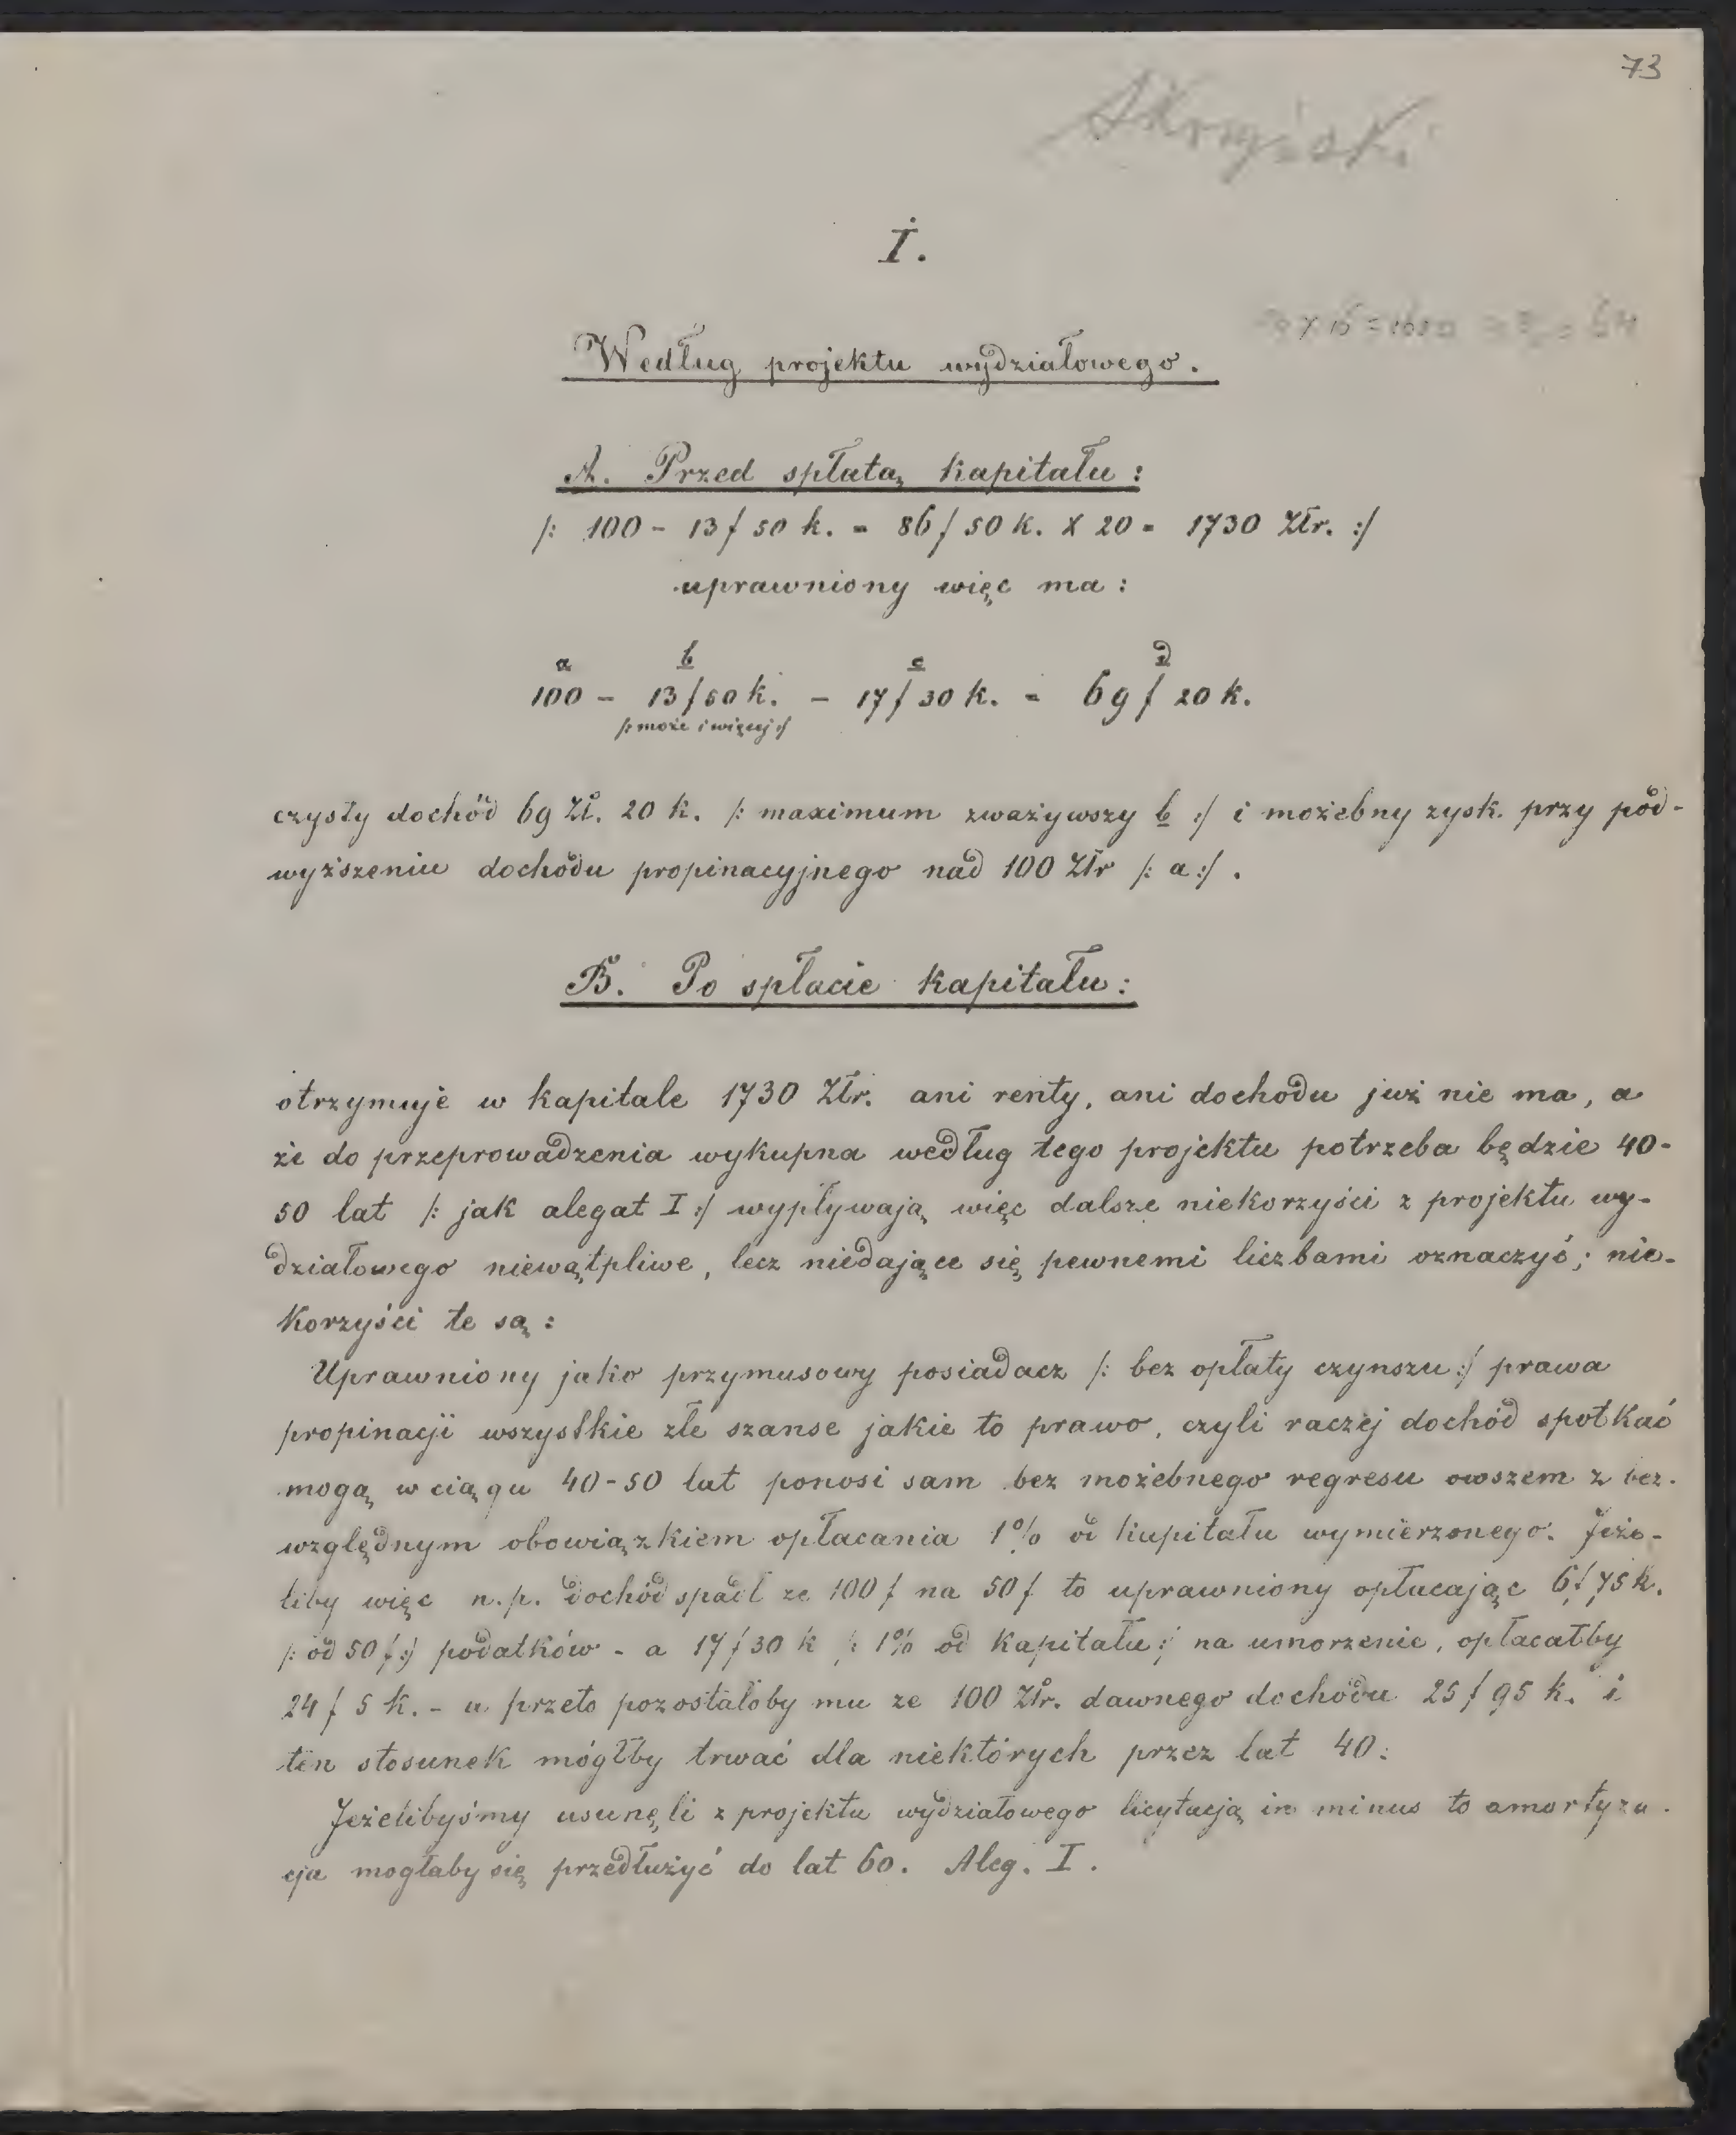 73
I.
Według projektu wydziałowego.
A. Przed spłatą kapitału:
/: 100 - 13 f 50 k. = 86 f 50 k. X 20 = 1730 Złr. :/
uprawniony więc ma:
a b c d
100 - 13 f 50 k. - 17 f 30 k. = 69 f 20 k.
/: może i więcej :/
czysty dochód 69 Zł. 20 k. /: maximum zważywszy b :/ i możebny zysk przy pod-
wyższeniu dochodu propinacyjnego nad 100 Złr /: a :/ .
B. Po spłacie kapitału:
otrzymuje w kapitale 1730 Złr. ani renty, ani dochodu już nie ma, a
że do przeprowadzenia wykupna według tego projektu potrzeba będzie 40-
50 lat /: jak alegat I :/ wypływają więc dalsze niekorzyści z projektu wy-
działowego niewątpliwe, lecz niedające się pewnemi liczbami oznaczyć; nie-
korzyści te są:
Uprawniony jako przymusowy posiadacz /: bez opłaty czynszu :/ prawa
propinacji wszystkie złe szanse jakie to prawo, czyli raczej dochód spotkać
mogą w ciągu 40-50 lat ponosi sam bez możebnego regresu owszem z bez-
względnym obowiązkiem opłacania 1% od kapitału wymierzonego. Jeże-
liby więc n.p. dochód spadł ze 100 f na 50 f to uprawniony opłacając 6 f 75 k.
/: od 50 f :/ podatków - a 17 f 30 k /: 1% od kapitału :/ na umorzenie, opłacałby
24 f 5 k. - a przeto pozostałoby mu ze 100 Złr. dawnego dochodu 25 f 95 k. i
ten stosunek mógłby trwać dla niektórych przez lat 40.
Jeżelibyśmy usunęli z projektu wydziałowego licytacją in minus to amortyza-
cja mogłaby się przedłużyć do lat 60. Aleg. I.